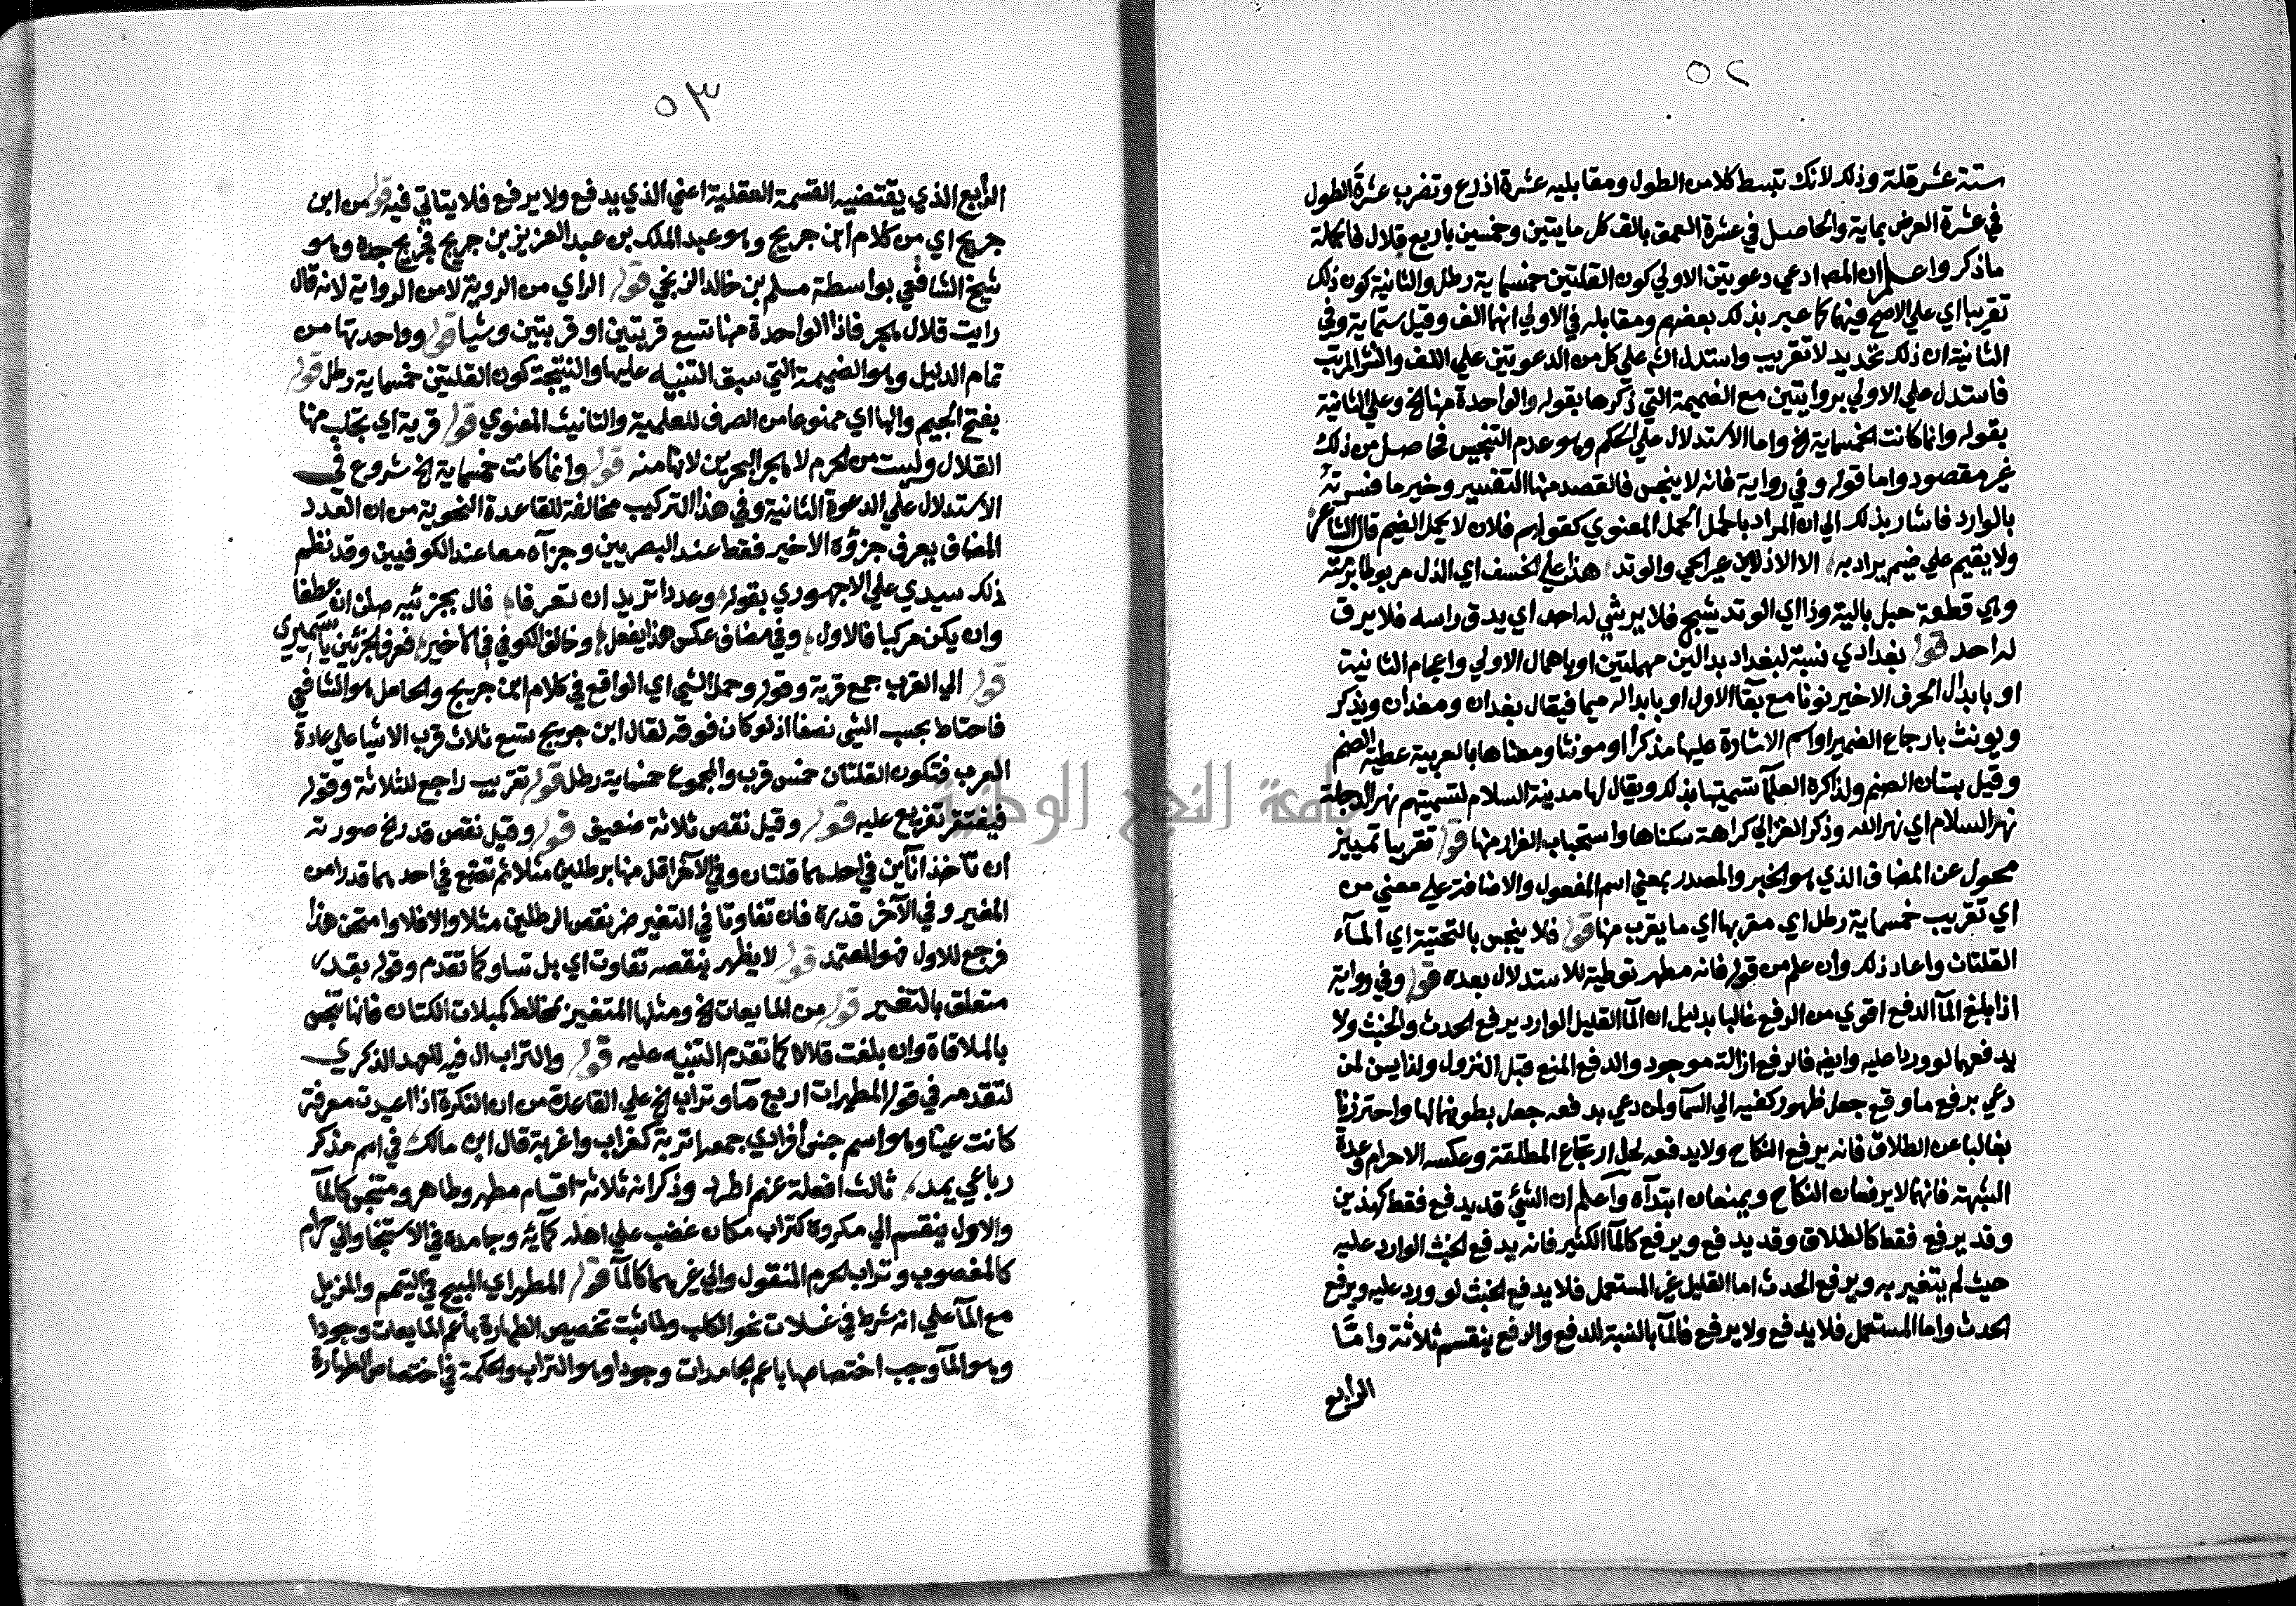 ٥٢
ستة عشر قلة وذلك لانك تبسط كلا من الطول ومقابليه عشرة اذرع وتضرب عشرة الطول
في عشرة العرض بماية والحاصل في عشرة العمق بالف كل مايتين وخمسين باربع قلال فالجملة
ماذكر واعلم ان المصا ادعي دعوتين الاولي كون القلتين خمسماية رطل والثانية كون ذلك
تقريبا اي علي الاصح فيهما كما عبر بذلك بعضهم ومقابله في الاولي انهما الف وقيل ستماية وفي
الثانية ان ذلك تحديد لا تقريب واستدل الش علي كل من الدعوتين علي اللف والنشر المرتب
فاستدل علي الاولي بروايتين مع الضميمة التي ذكرها بقوله والواحدة منها الخ وعلي الثانية
بقوله وانما كانت الخمسماية الخ واما الاستدلال علي الحكم وهو عدم التنجيس فحاصل من ذلك
غير مقصود واما قوله وفي رواية فانه لا ينجس فالقصد منها التفسير وخير ما فسرته
بالوارد فاشار بذلك الي ان المراد بالحمل الحمل المعنوي كقولهم فلان لا يحمل الضيم قال الشاعر
ولا يقيم علي ضيم يراد به الا الاذلان عير الحي والوتد هذا علي الخسف اي الذل مربوط برمته
وهي قطعة حبل بالية وذا اي الوتد يشج فلا يرثي له احد اي يدق راسه فلا يرق
له احد قوله بغدادي نسبة لبغداد بدالين مهملتين او باهمال الاولي واعجام الثانية
او بابدال الحرف الاخير نونا مع بقا الاول او بابداله ميما فيقال بغدان ومغدان ويذكر
ويونث بارجاع الضمير او اسم الاشارة عليها مذكرا او مونثا ومعناها بالعربية عطية الصنم
وقيل بستان الصنم ولذا كره العلمآ تسميتها بذلك ويقال لها مدينة السلام لتسميتهم نهر الدجلة
نهر السلام اي نهر الله وذكر الغزالي كراهة سكناها واستحباب الفرار منها قوله تقريبا تمييز
محول عن المضاف الذي هو الخبر والمصدر بمعني اسم المفعول والاضافة علي معني من
اي تقريب خمسماية رطل اي مقربها اي ما يقرب منها قوله فلا ينجس بالتحتية اي المآء
القلتان واعاد ذلك وان علم من قوله فانه مطهر توطية للاستدلال بعده قوله وفي رواية
اذا بلغ المآ الدفع اقوي من الرفع غالبا بدليل ان المآ القليل الوارد يرفع الحدث والخبث ولا
يدفعهما لو وردا عليه وايضا فالرفع ازالة موجود والدفع المنع قبل النزول ولذا يسن لمن
دعي برفع ما وقع جعل ظهور كفيه الي السمآ ولمن دعي بدفعه جعل بطونهما لها واحترزنا
بغالبا عن الطلاق فانه يرفع النكاح ولا يدفعه لحل ارتجاع المطلقة وعكسه الاحرام وعدة
الشبهة فانهما لا يرفعان النكاح ويمنعان ابتدآه واعلم ان الشئ قد يدفع فقط كهذين
وقد يرفع فقط كالطلاق وقد يدفع ويرفع كالمآ الكثير فانه يدفع الخبث الوارد عليه
حيث لم يتغير به ويرفع الحدث اما القليل غير المستعمل فلا يدفع الخبث لو ورد عليه ويرفع
الحدث واما المستعمل فلا يدفع ولا يرفع فالمآ بالنسبة للدفع والرفع ينقسم ثلاثة وامّا
الرابع
٥٣
الرابع الذي يقتضيه القسمة العقلية اعني الذي يدفع ولا يرفع فلا يتاتي فيه قوله من ابن
جريج اي من كلام ابن جريج وهو عبد الملك بن عبد العزيز بن جريج فجريج جده وهو
شيخ الشافعي بواسطة مسلم بن خالد الزنجي قوله الراي من الروية لا من الرواية لانه قال
رايت قلال هجر فاذا الواحدة منها تسع قربتين او قربتين وشيا قوله وواحدتها من
تمام الدليل وهو الضميمة التي سبق التنبيه عليها والنتيجة كون القلتين خمسماية رطل قوله
بفتح الجيم والها اي ممنوعا من الصرف للعلمية والتانيث المعنوي قوله قرية اي تجلب منها
القلال وليست من الحرم لا هجر البحرين لانها منه قوله وانما كانت خمسماية الخ شروع في
الاستدلال علي الدعوة الثانية وفي هذا التركيب مخالفة للقاعدة النحوية من ان العدد
المضاف يعرف جزؤه الاخير فقط عند البصريين وجزآه معا عند الكوفيين وقد نظم
ذلك سيدي علي الاجهوري بقوله وعددا تريد ان تعرفا فال بجزئيه صلن ان عطفا
وان يكن مركبا فالاول وفي مضاف عكس هذا يفعل وخالف الكوفي في الاخير فعرف الجزئين يا سميري
قوله الي القرب جمع قربة وقوله وحمل الشي اي الواقع في كلام ابن جريج والحامل هو الشافعي
فاحتاط بحسب الشي نصفا اذ لو كان فوقه لقال ابن جريج تسع ثلاث قرب الا شيا علي عادة
العرب فتكون القلتان خمس قرب والمجموع خمسماية رطل قوله تقريب راجع للثلاثة وقوله
فيغتفر تفريع عليه قوله وقيل نقص ثلاثة ضعيف قوله وقيل نقص قدر الخ صورته
ان تاخذ انآين في احدهما قلتان وفي الآخر اقل منها برطلين مثلا ثم تضع في احدهما قدرا من
المغير وفي الآخر قدره فان تفاوتا في التغير ضر نقص الرطلين مثلا والا فلا وامتحن هذا
فرجع للاول فهو المعتمد قوله لا يظهر بنقصه تفاوت اي بل تساو كما تقدم وقوله بقدر
متعلق بالتغير قوله من المايعات الخ ومثلها المتغير بمخالط كمبلات الكتان فانها تنجس
بالملاقاة وان بلغت قلالا كما تقدم التنبيه عليه قوله والتراب ال فيه للعهد الذكري
لتقدمه في قوله المطهرات اربع مآ وتراب الخ علي القاعدة من ان النكرة اذا اعيدت معرفة
كانت عينا وهو اسم جنس افرادي جمعه اتربة كغراب واغربة قال ابن مالك في اسم مذكر
رباعي بمد ثالث افعلة عنهم اطرد وذكر انه ثلاثة اقسام مطهر وطاهر ومتنجس كالمآ
والاول ينقسم الي مكروه كتراب مكان غضب علي اهله كمآئه وجامده في الاستنجا والي حرام
كالمغصوب وتراب الحرم المنقول والي غيرهما كالمآ قوله المطهر اي المبيح في التيمم والمزيل
مع المآ علي انه شرط في غسلات نحو الكلب ولما ثبت تخصيص الطهارة باعم المايعات وجودا
وهو المآ وجب اختصاصها باعم الجامدات وجودا وهو التراب والحكمة في اختصاص الطهارة
جامعة النجاح الوطنية